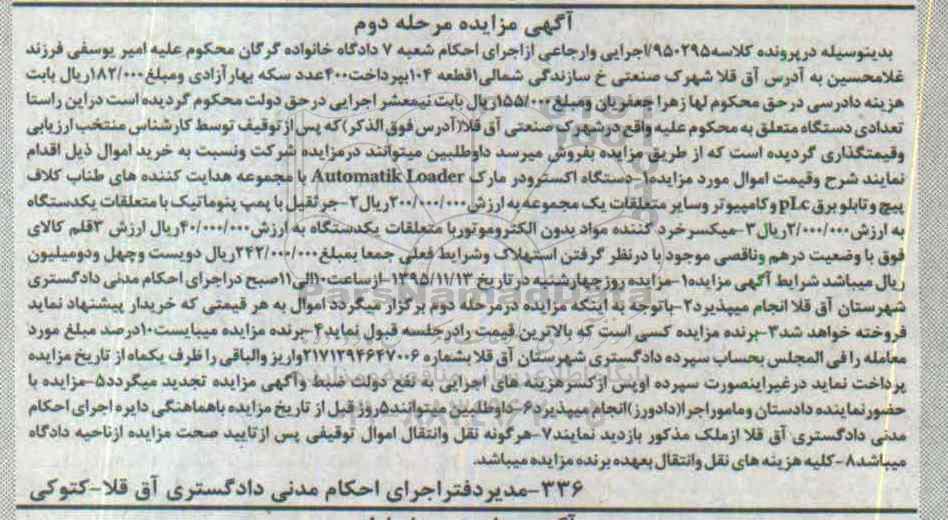 آگهی مزایده مرحله دوم
بدینوسیله درپرونده کلاسه۹۵۰۲۹۵/اجرایی وارجاعی ازاجرای احکام شعبه ۷ دادگاه خانواده گرگان محکوم علیه امیر یوسفی فرزند
غلامحسین به آدرس آق قلا شهرک صنعتی خ سازندگی شمالی۱قطعه ۱۰۴بپرداخت۴۰۰عدد سکه بهارآزادی ومبلغ۱۸۲/۰۰۰ریال بابت
هزینه دادرسی درحق محکوم لها زهرا جعفریان ومبلغ۱۵۵/۰۰۰ریال بابت نیمعشر اجرایی درحق دولت محکوم گردیده است دراین راستا
تعدادی دستگاه متعلق به محکوم علیه واقع درشهرک صنعتی آق قلا(آدرس فوق الذکر)که پس ازتوقیف توسط کارشناس منتخب ارزیابی
وقیمتگذاری گردیده است که از طریق مزایده بفروش میرسد داوطلبین میتوانند درمزایده شرکت ونسبت به خرید اموال ذیل اقدام
نمایند شرح وقیمت اموال مورد مزایده۱-دستگاه اکسترودر مارک Automatik Loader با مجموعه هدایت کننده های طناب کلاف
پیچ وتابلو برق pLc وکامپیوتر وسایر متعلقات یک مجموعه به ارزش۲۰۰/۰۰۰/۰۰۰ریال۲-جرثقیل با پمپ پنوماتیک با متعلقات یکدستگاه
به ارزش۲/۰۰۰/۰۰۰ریال۳-میکسرخرد کننده مواد بدون الکتروموتوربا متعلقات یکدستگاه به ارزش۴۰/۰۰۰/۰۰۰ریال ارزش ۳قلم کالای
فوق با وضعیت درهم وناقصی موجود با درنظر گرفتن استهلاک وشرایط فعلی جمعا بمبلغ۲۴۲/۰۰۰/۰۰۰ریال دویست وچهل ودومیلیون
ریال میباشد شرایط آگهی مزایده۱-مزایده روزچهارشنبه درتاریخ ۱۳۹۵/۱۱/۱۳ ازساعت۱۰الی۱۱صبح دراجرای احکام مدنی دادگستری
شهرستان آق قلا انجام میپذیرد۲-باتوجه به اینکه مزایده درمرحله دوم برگزار میگردد اموال به هر قیمتی که خریدار پیشنهاد نماید
فروخته خواهد شد۳-برنده مزایده کسی است که بالاترین قیمت رادرجلسه قبول نماید۴-برنده مزایده میبایست۱۰درصد مبلغ مورد
معامله را فی المجلس بحساب سپرده دادگستری شهرستان آق قلا بشماره ۲۱۷۱۲۹۴۶۴۷۰۰۶واریز والباقی را ظرف یکماه از تاریخ مزایده
پرداخت نماید درغیراینصورت سپرده اوپس ازکسرهزینه های اجرایی به نفع دولت ضبط وآگهی مزایده تجدید میگردد۵-مزایده با
حضورنماینده دادستان ومامور اجرا(دادورز)انجام میپذیرد۶-داوطلبین میتوانند۵روز قبل از تاریخ مزایده باهماهنگی دایره اجرای احکام
مدنی دادگستری آق قلا ازملک مذکور بازدید نمایند۷-هرگونه نقل وانتقال اموال توقیفی پس ازتایید صحت مزایده ازناحیه دادگاه
میباشد۸-کلیه هزینه های نقل وانتقال بعهده برنده مزایده میباشد.
۳۳۶-مدیردفتراجرای احکام مدنی دادگستری آق قلا-کتوکی